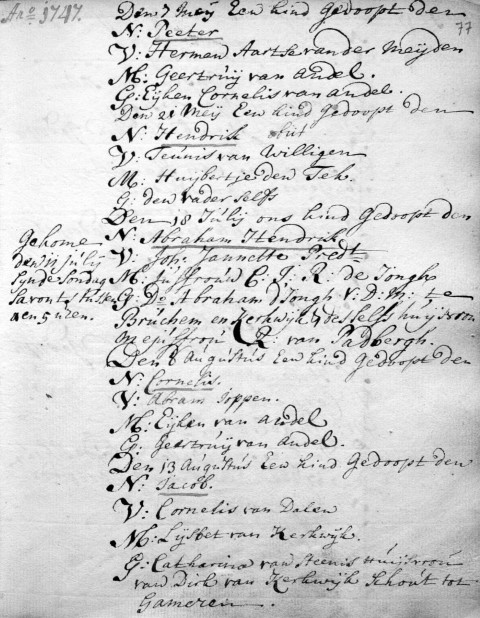 Ano 1747.
77
Den 7 Meij Een kind Gedoopt den
N: Peeter
V: Hermen Aartse van der Meijden
M: Geertruij van andel.
G: Eijken Cornelis van andel.
Den 21 Meij Een kind Gedoopt den
N: Hendrik
V: Teunis van Willigen
M: Huijbertje den Tek.
G: den vader selfs
Den 18 Julij ons kind Gedoopt den
N: Abraham Hendrik
V: Joh: Jannette Predt
M: Juffrouw C. J. R. de Jongh
G: Do Abraham d'Jongh V: D: M: te
Bruchem en Kerkwijk & desselfs huijsvrou
Mejuffrou R. van Padbergh.
Gekome
den Julij
sijnde Sondag
savonts tussen
4 en 5 uren.
Den 8 Augustus Een kind Gedoopt den
N: Cornelis.
V: Abram Joppen.
M: Eijken van andel
G: Geertruij van andel.
Den 13 Augustus Een kind Gedoopt den
N: Jacob.
V: Cornelis van Dalen
M: Lijsbet van Kerkwijk.
G: Catharina van Steenis Huijsvrou
van Dirk van Kerkwijk Schout tot
Gameren.